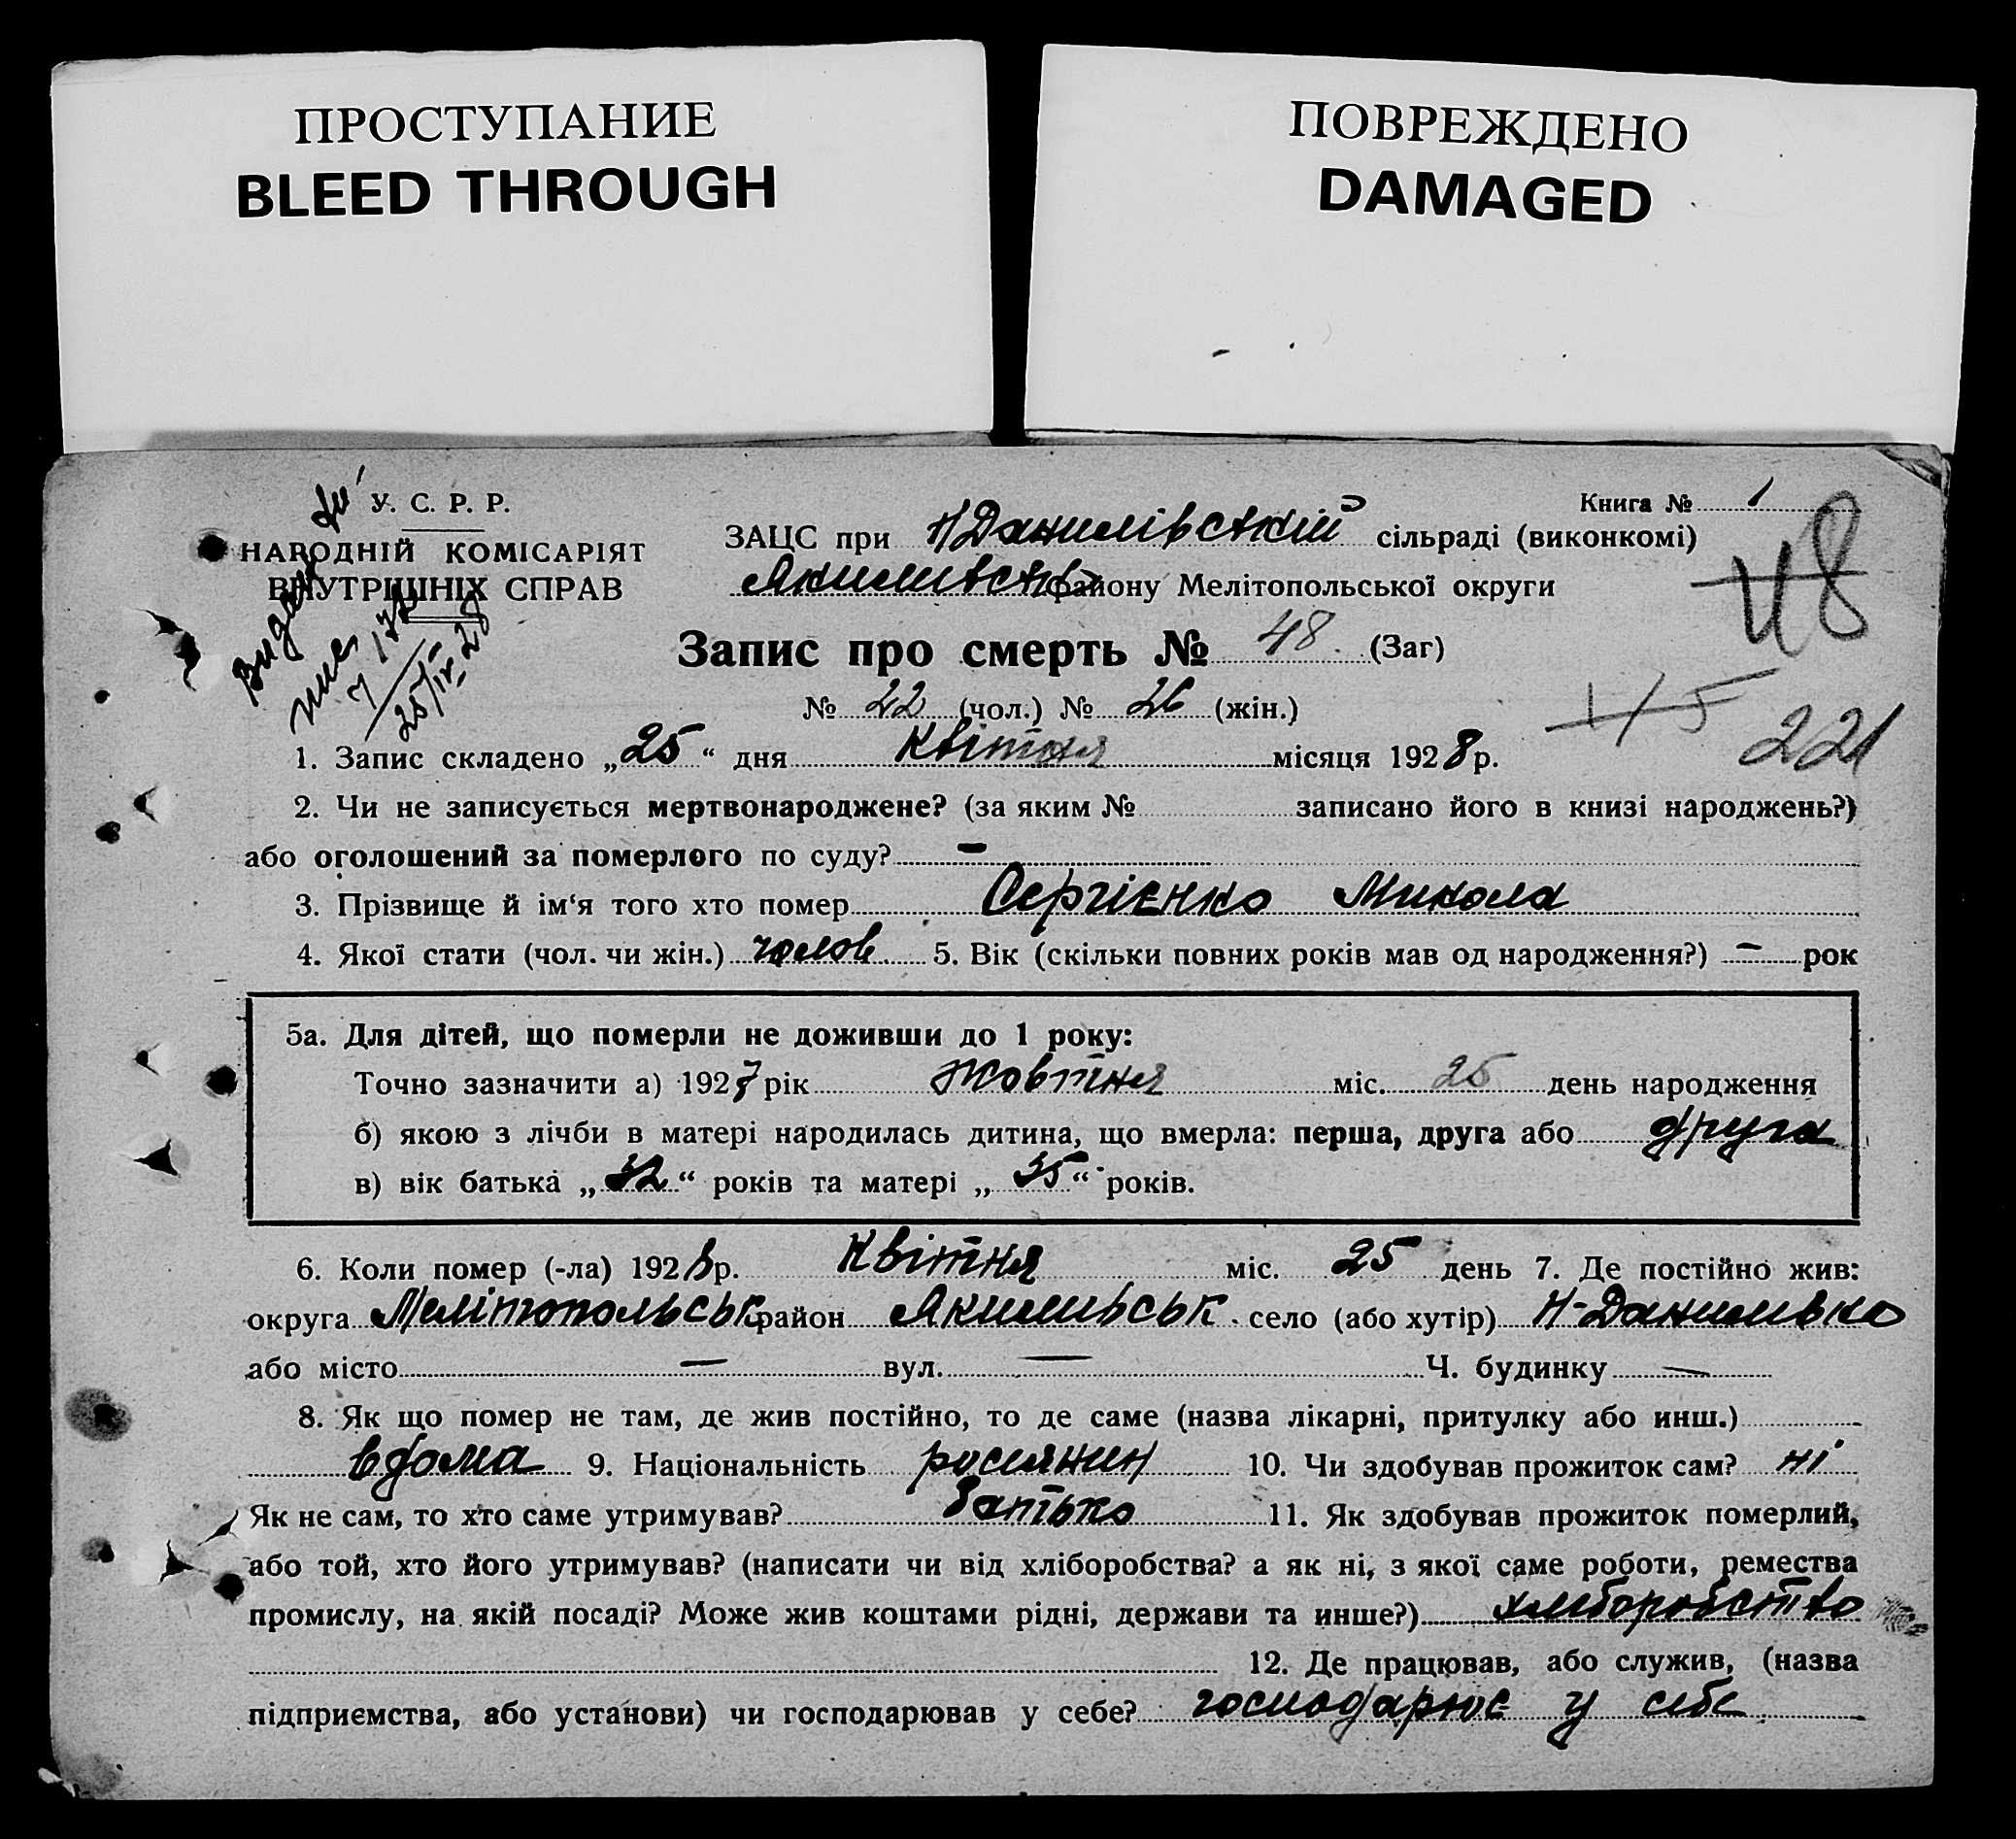 ПРОСТУПАНИЕ
BLEED THROUGH
ПОВРЕЖДЕНО
DAMAGED
У. С. Р. Р.
НАРОДНІЙ КОМІСАРІЯТ
ВНУТРІШНІХ СПРАВ
Видан
25/IV 28
Книга № 1
ЗАЦС при Н Данилівській сільраді (виконкомі)
Якимівськ району Мелітопольської округи
48
Запис про смерть № 48. (Заг)
№ 22 (чол.) № 26 (жін.)
45
221
1. Запис складено „25“ дня Квітня місяця 1928 р.
2. Чи не записується мертвонароджене? (за яким № записано його в книзі народжень?)
або оголошений за померлого по суду? —
3. Прізвище й ім‘я того хто помер Сергієнко Микола
4. Якої стати (чол. чи жін.) чолов. 5. Вік (скільки повних років мав од народження?) — рок
5а. Для дітей, що померли не доживши до 1 року:
Точно зазначити а) 1927 рік жовтня міс. 25 день народження
б) якою з лічби в матері народилась дитина, що вмерла: перша, друга або друга
в) вік батька „32“ років та матері „35“ років.
6. Коли помер (-ла) 1928 р. Квітня міс. 25 день 7. Де постійно жив:
округа Мелітопольськ район Якимівськ. село (або хутір) Н-Данилівка
або місто — вул. — Ч. будинку —
8. Як що помер не там, де жив постійно, то де саме (назва лікарні, притулку або инш.)
вдома 9. Національність росиянин 10. Чи здобував прожиток сам? ні
Як не сам, то хто саме утримував? Батько 11. Як здобував прожиток померлий,
або той, хто його утримував? (написати чи від хліборобства? а як ні, з якої саме роботи, ремества
промислу, на якій посаді? Може жив коштами рідні, держави та инше?) хліборобство
12. Де працював, або служив, (назва
підприємства, або установи) чи господарював у себе? господарює у себе